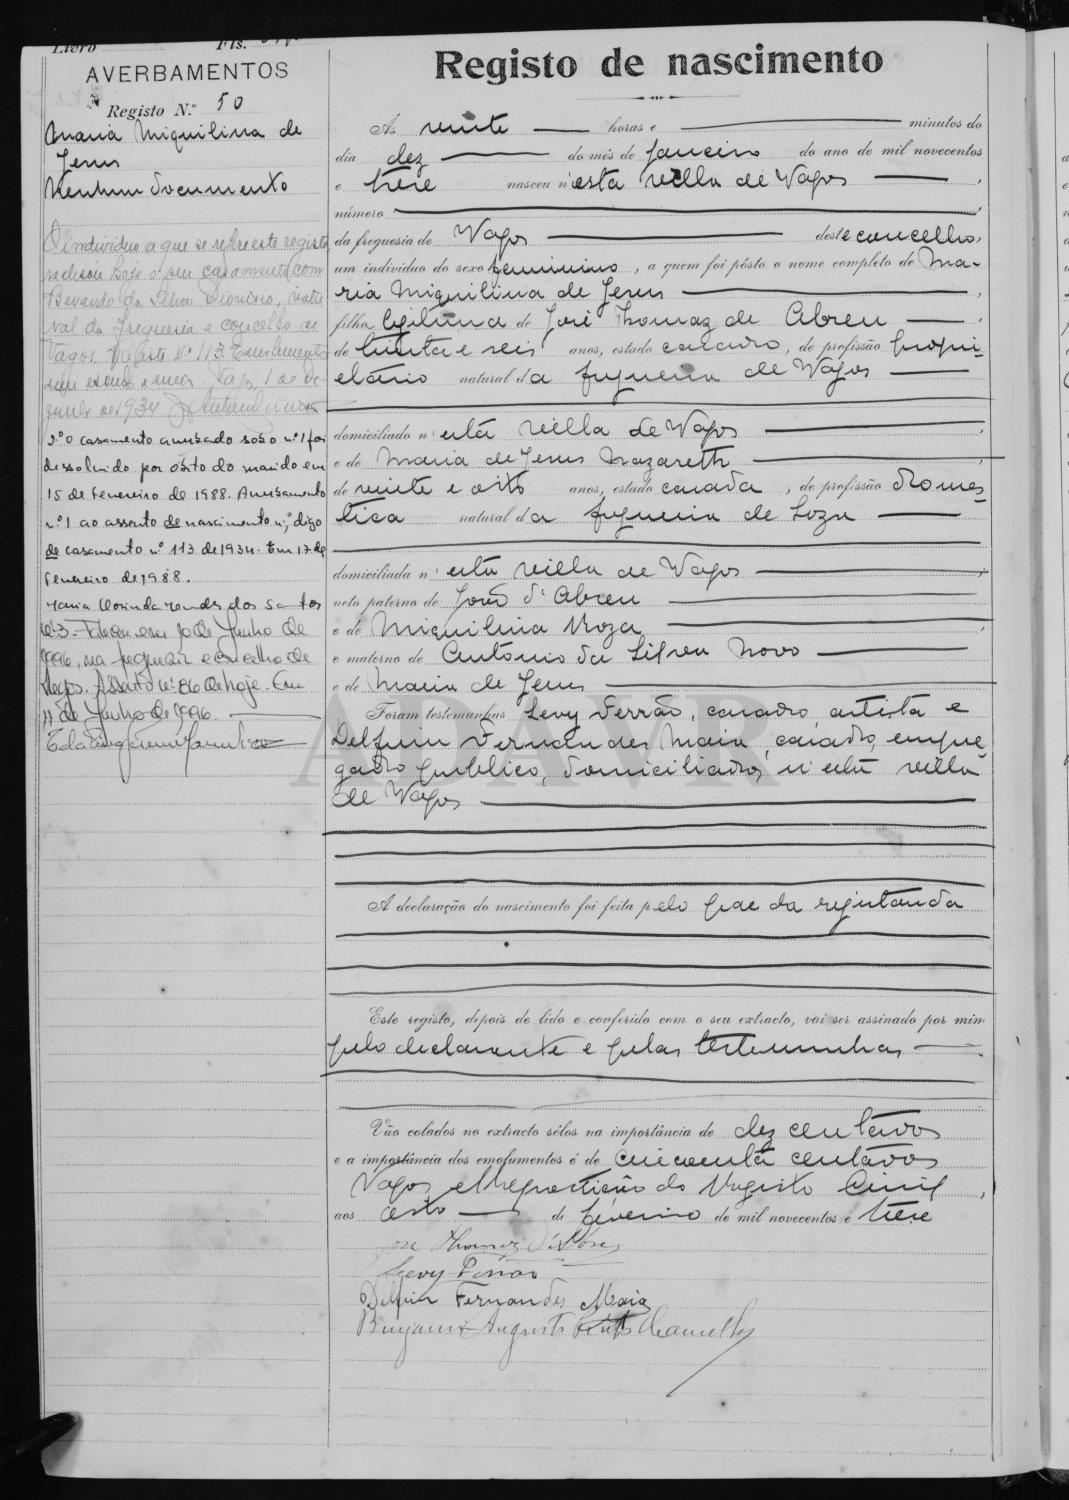 Livro Fls.
AVERBAMENTOS
Registo N.º 50
Maria Miquilina de
Jesus
Nenhum documento
O individuo a que se refere este registo
realisou hoje o seu casamento com
da Silva Dionisio, natu
ral da freguesia e concelho de
Vagos. Registo Nº 113.
Vagos, 1 de De
zembro de 1934
2º O casamento averbado sob o nº 1 foi
dissolvido por óbito do marido em
15 de Fevereiro de 1988. Averbamento
nº 1 ao assento de nascimento nº, digo
de casamento nº 113 de 1934. Em 17 de
Fevereiro de 1988.
Maria Clorinda Mendes dos Santos
Nº 3 - Faleceu em 10 de Junho de
1996, na freguesia e concelho de
Vagos. Assento nº 86 de hoje. Em
11 de Junho de 1996.
Registo de nascimento
Às vinte horas e minutos do
dia dez do mês de Janeiro do ano de mil novecentos
e treze nasceu n'esta villa de Vagos
número
da freguesia de Vagos deste concelho,
um individuo do sexo feminino, a quem foi pôsto o nome completo de Ma-
ria Miquilina de Jesus
filha legitima de José Thomaz de Abreu
de trinta e seis anos, estado casado, de profissão propri-
etário natural da freguesia de Vagos
domiciliado n'esta villa de Vagos
e de Maria de Jesus Nazareth
de vinte e oito anos, estado casada, de profissão domes-
tica natural da freguesia de Soza
domiciliada n'esta villa de Vagos
neto paterno de João d'Abreu
e de Miquilina Roza
e materno de António da Silva Novo
e de Maria de Jesus
Foram testemunhas Levy Ferrão, casado, artista e
Delfim Fernandes Maia, casado, empre-
gado publico, domiciliados n'esta villa
de Vagos
A declaração do nascimento foi feita pelo pae da registanda
Este registo, depois de lido e conferido com o seu extracto, vai ser assinado por mim
pelo declarante e pelas testemunhas
Vão colados no extracto sêlos na importância de dez centavos
e a importância dos emolumentos é de cincoenta centavos
Vagos, e Repartição do Registo Civil,
aos oito de Fevereiro de mil novecentos e treze
José Thomaz d'Abreu
Levy Ferrão
Delfim Fernandes Maia
Benjamin Augusto
ADAVR